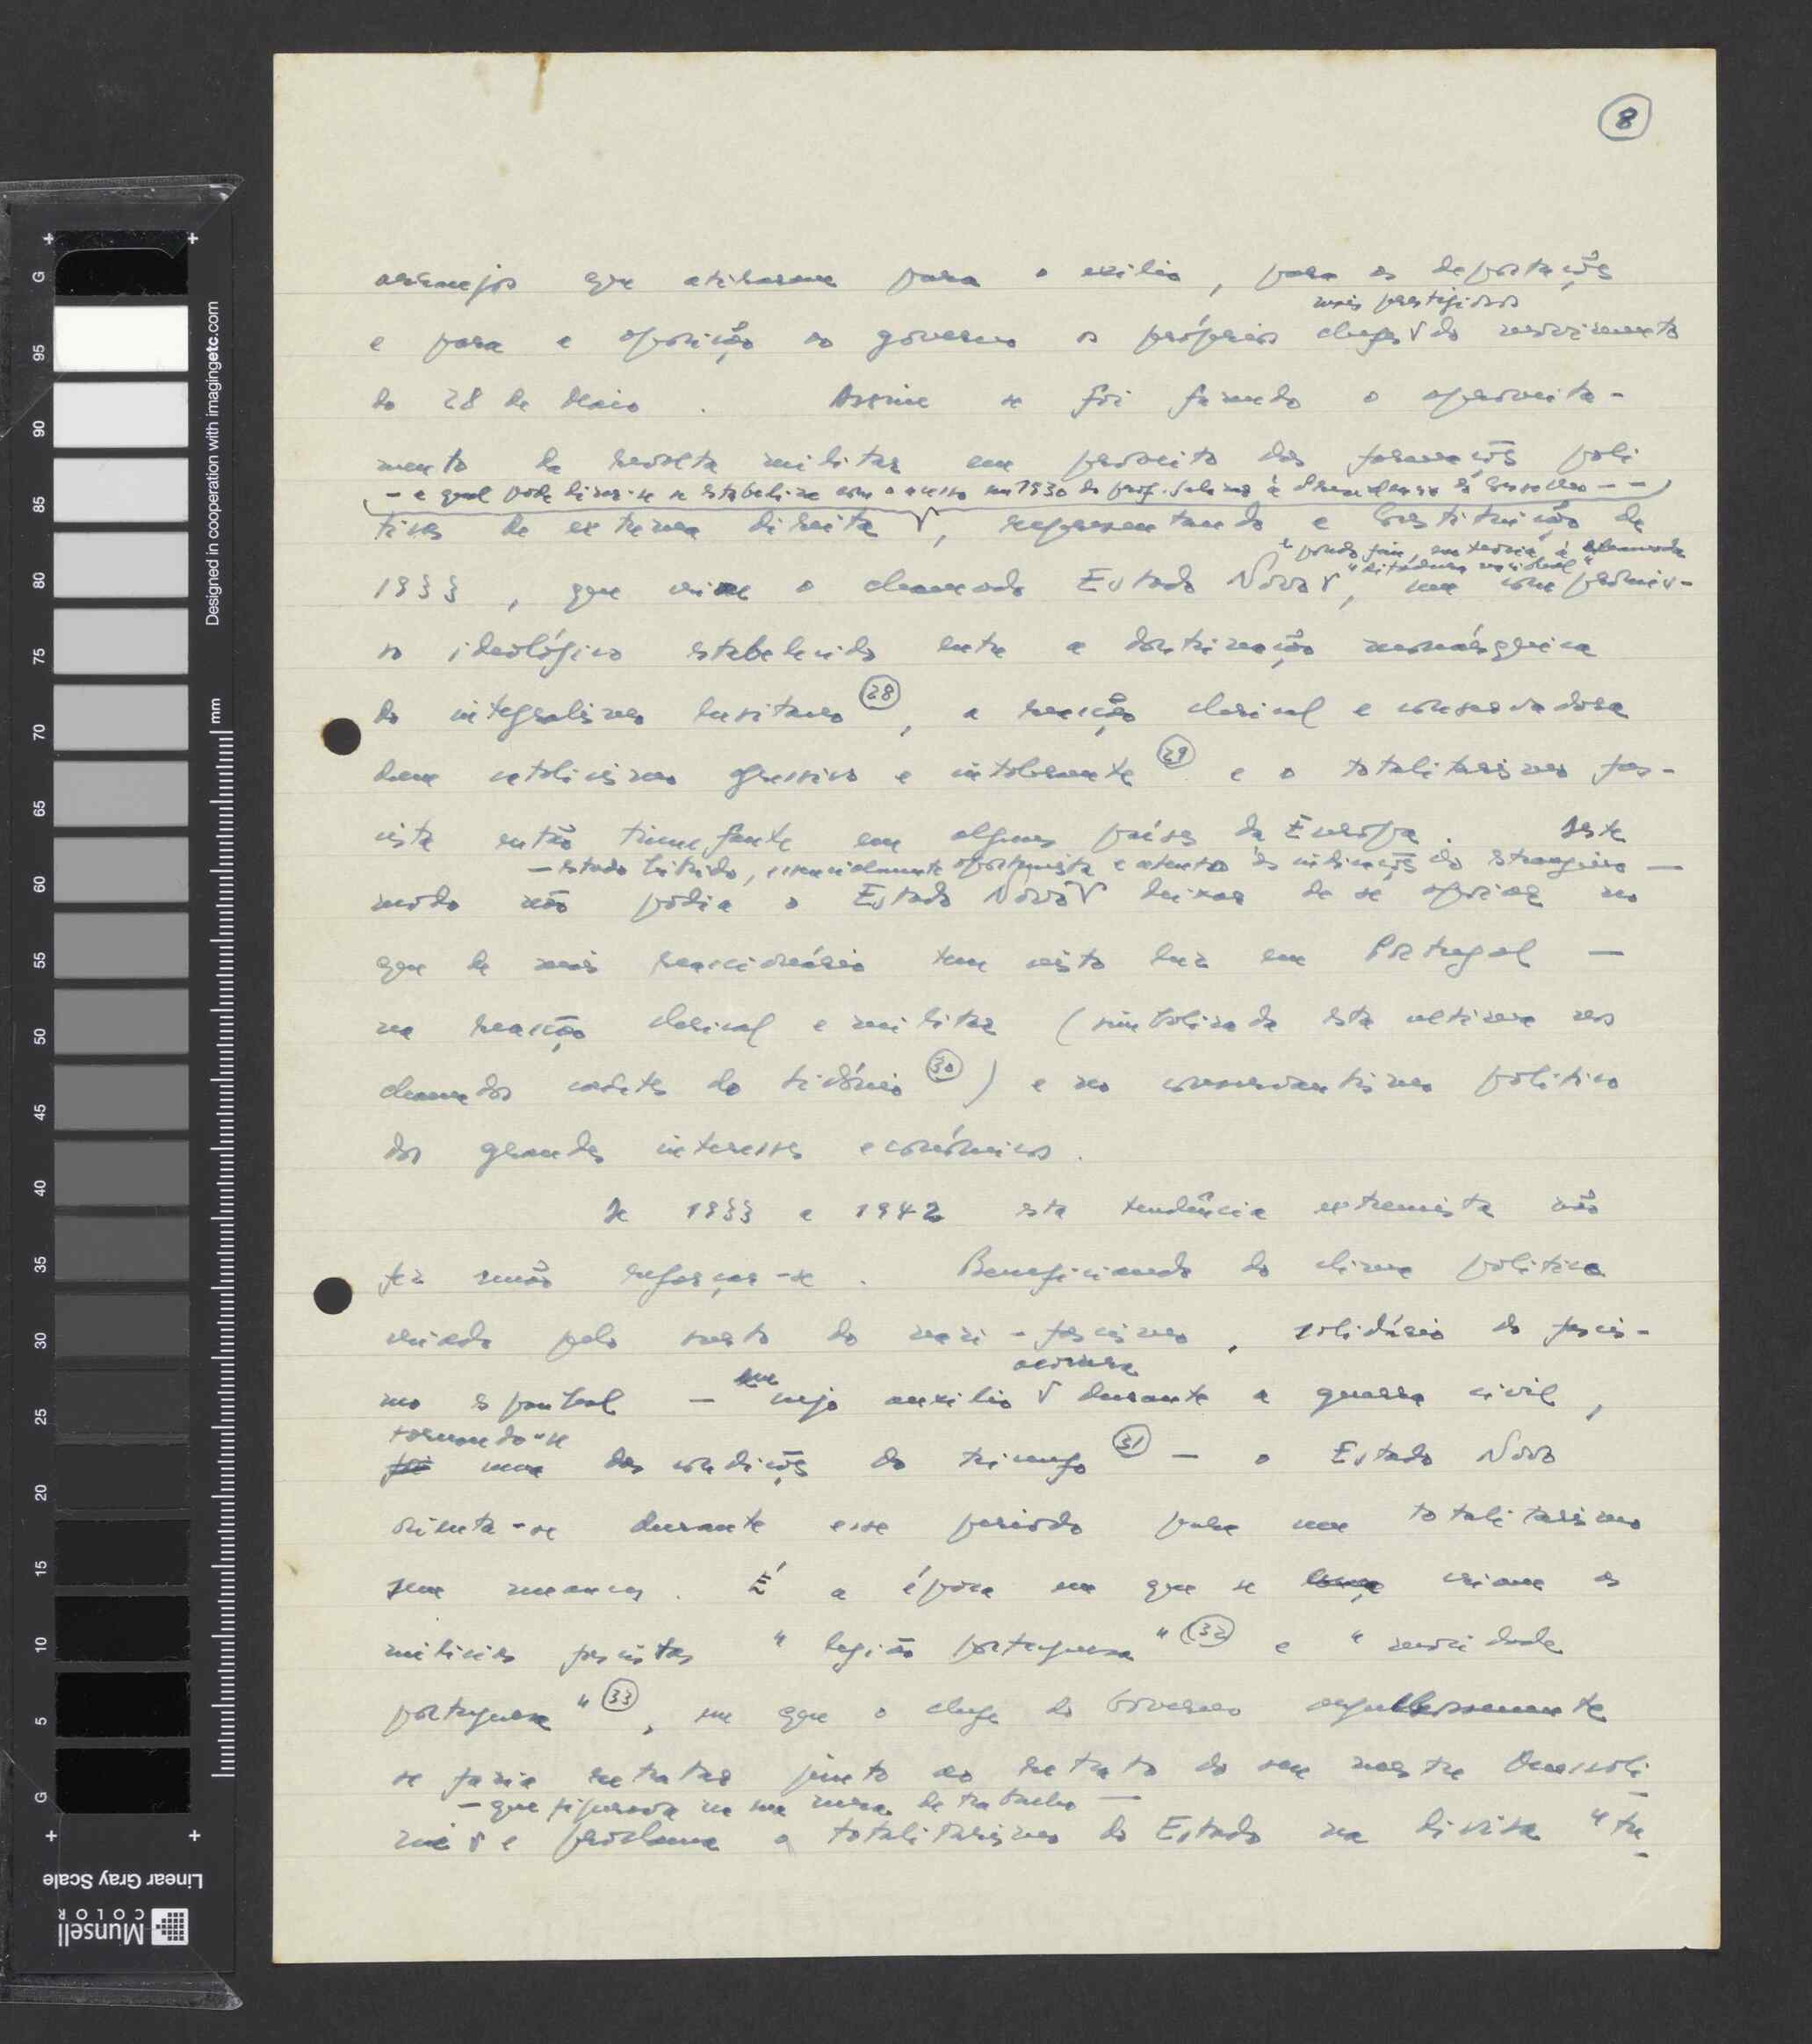 8
arranjos que atiraram para o exílio, para as deportações
mais prestigiosos
e para a oposição ao governo os próprios chefes do movimento
do 28 de Maio. Assim se foi fazendo o aproveita-
mento da revolta militar em proveito das formações polí
- a qual pode dizer-se se estabiliza com o acesso em 1930 do prof. Salazar à do Governo - -
ticas de extrema direita, representando a Constituição de
e pondo fim, em teoria, à chamada
"ditadura nacional"
1933, que cria o chamado Estado Novo, um compromis-
so ideológico estabelecido entre a doutrinação monárquica
do integralismo lusitano (28), a reacção clerical e conservadora
dum catolicismo opressivo e intolerante (29) e o totalitarismo fas-
cista então triunfante em alguns países da Europa. Deste
- estado híbrido, essencialmente oportunista e atento às indicações do estrangeiro -
modo não podia o Estado Novo deixar de se apoiar no
que de mais reaccionário tem visto luz em Portugal -
na reacção clerical e militar (simbolizada esta ultima nos
chamados cadetes do Sidónio (30)) e no conservantismo político
dos grandes interesses económicos.
De 1933 a 1942 esta tendência extremista não
fez senão reforçar-se. Beneficiando do clima político
criado pelo surto do nazi-fascismo, solidário do fascis-
mo espanhol - cujo auxilio durante a guerra civil,
tornando-se
foi uma das condições do triunfo (31) - o Estado Novo
orienta-se durante esse periodo para um totalitarismo
sem nuances. É a época em que se criam as
milicias fascistas "legião portuguesa" (32) e "mocidade
portuguesa" (33), em que o chefe do Governo orgulhosamente
se fazia retratar junto ao retrato do seu mestre Mussoli
- que figurava na sua mesa de trabalho -
ni e proclama o totalitarismo do Estado na divisa "tu
Designed in cooperation with imagingetc.com
mm
G 95 90 85 80 75 70 65 60 55 50 45 40 35 30 25 20 15 10 5 G
Linear Gray Scale
Munsell
COLOR